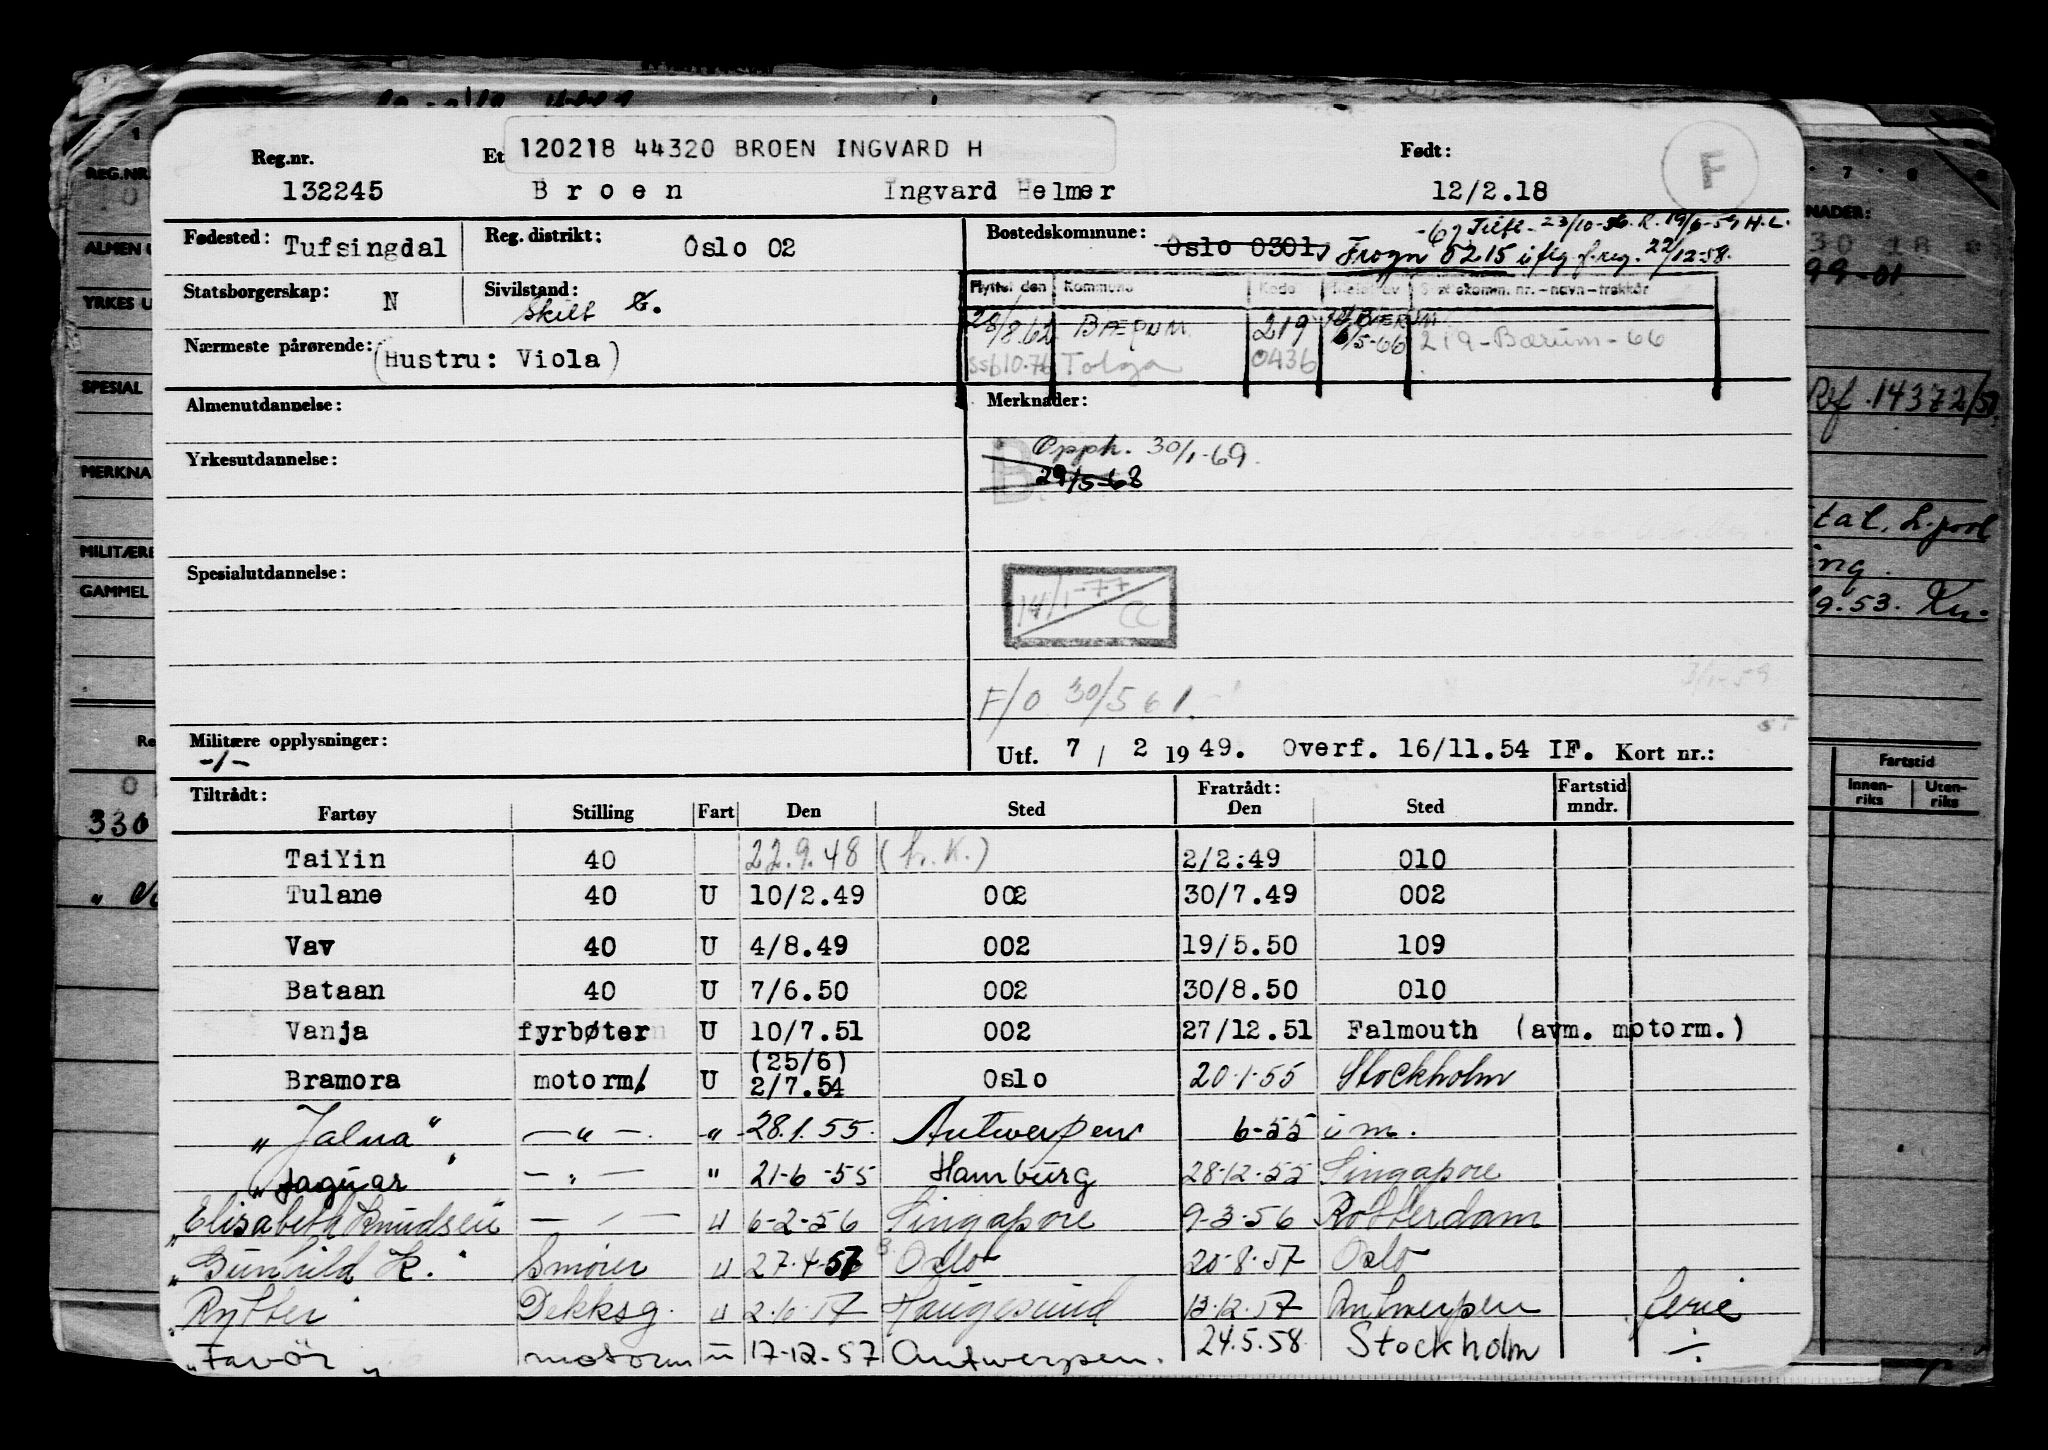 Reg.nr. Et 120218 44320 BROEN INGVARD H Født: F
132245 Broen Ingvard Helmer 12/2.18
Fødested: Tufsingdal Reg. distrikt: Oslo 02 Bostedskommune: Oslo 0301, Frogn 0215 iflg f.reg. 22/12-58.
-67 Tilfl. 23/10-56. R. 19/6-59 H.L.
Statsborgerskap: N Sivilstand: Skilt G.
Flyttet den Kommune Kode
28/8.62 BÆRUM 219 6/5-66 219-Bærum-66
Nærmeste pårørende: (Hustru: Viola)
ssb10.76 Tolga 0436
Almenutdannelse: Merknader:
B. Opph. 30/1-69.
Yrkesutdannelse: 29/5-68
Spesialutdannelse:
14/1-77 CC
F/O 30/5 61.
3/1-59
Militære opplysninger: -/-
Utf. 7 / 2 1949. Overf. 16/11.54 IF. Kort nr.:
Tiltrådt: Fratrådt: Fartstid
Fartøy Stilling Fart Den Sted Den Sted mndr.
TaiYin 40 22.9.48 (h.K.) 2/2:49 010
Tulane 40 U 10/2.49 002 30/7.49 002
Vav 40 U 4/8.49 002 19/5.50 109
Bataan 40 U 7/6.50 002 30/8.50 010
Vanja fyrbøter U 10/7.51 002 27/12.51 Falmouth (avm. motorm.)
Bramora motorm. U (25/6) 2/7.54 Oslo 20.1.55 Stockholm
"Jalna" —"—. -"- 28.1.55. Antwerpen 6-55 i m.
"Jaguar" —"— " 21-6-55 Hamburg 28.12.55 Singapore
"Elisabeth Knudsen — — u 6-2-56 Singapore 9-3-56 Rotterdam
"Gunhild K." Smører u 27.4-57 Oslo 20.8.57 Oslo
"Rytter" Dekksg. u 2.10.57 Haugesund 13.12.57 Antwerpen ferie
"Favör" motorm u 17-12-57 Antwerpen. 24.5.58. Stockholm -/-
REG.NR.
ALMEN U
YRKES U
SPESIAL
MERKNA
MILITÆRE
GAMMEL
Re
330
7 8
NADER:
99-01
Ref. 14372/5
tal. L.pool
ing.
9.53. Kn-
Fartstid
Innen-riks Uten-riks